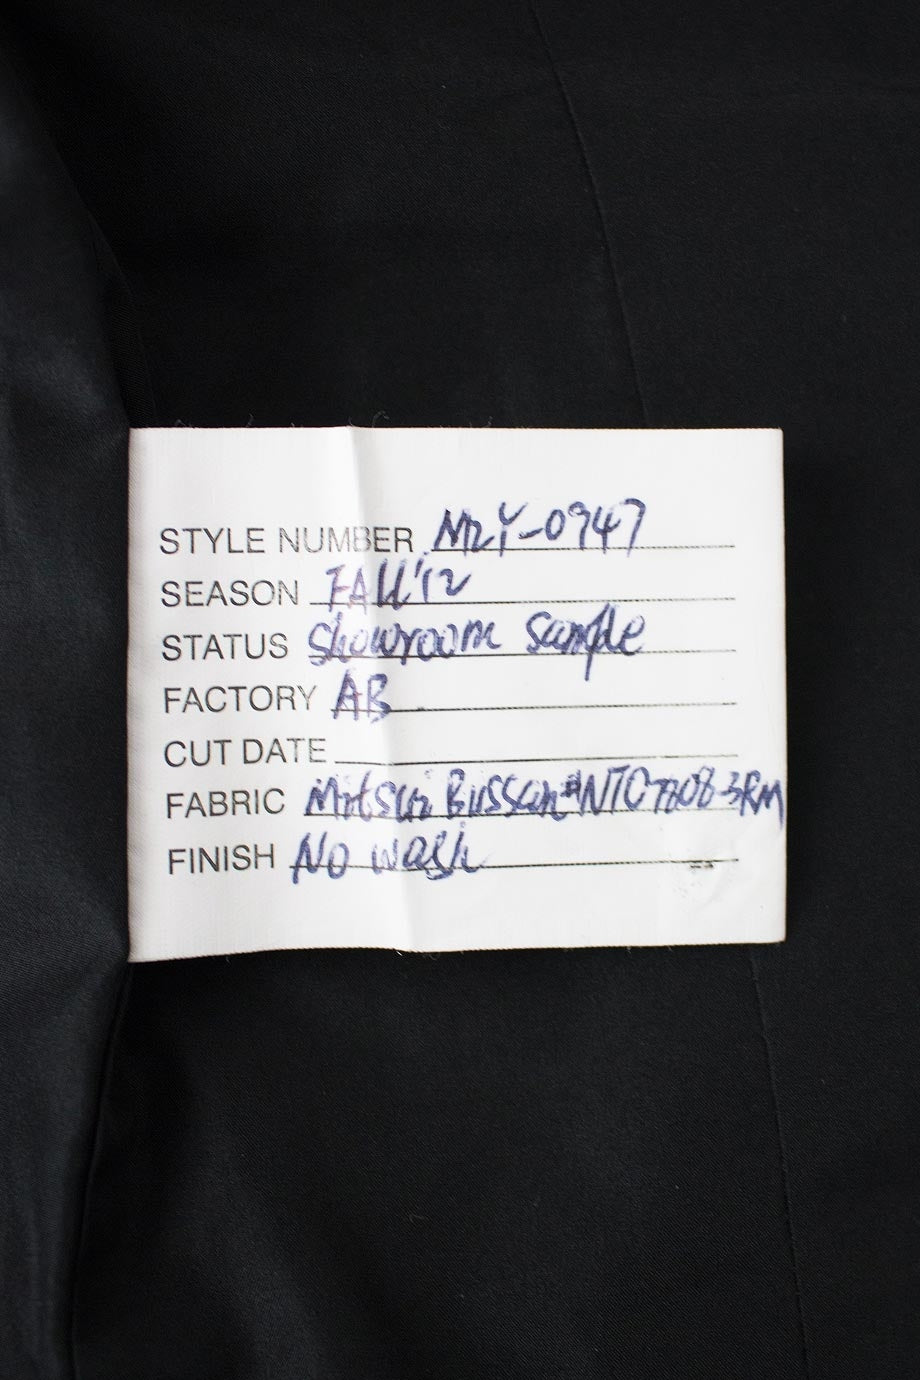 STYLE NUMBER MRY-0947
SEASON FALL'12
STATUS Showroom Sample
FACTORY AB
CUT DATE
FABRIC Mitsui Bussan #NTC7808-3RM
FINISH No wash